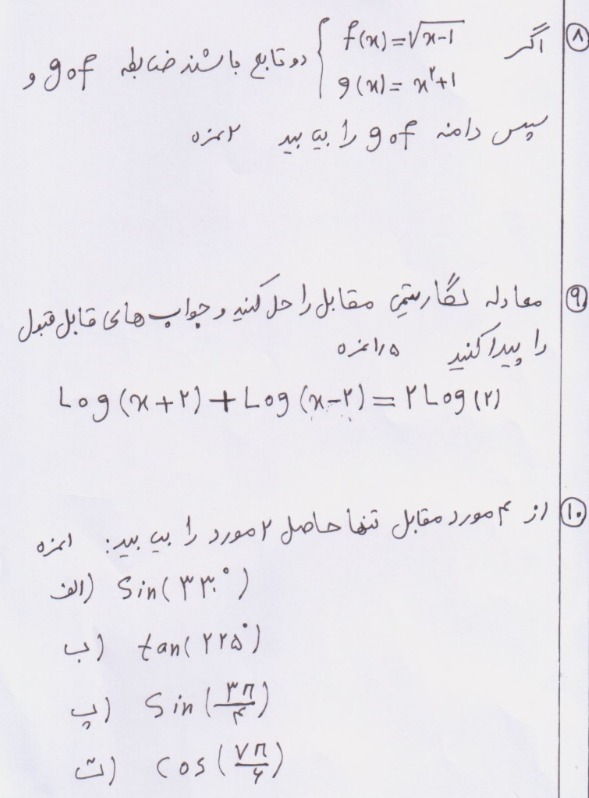 ۸) اگر { f(x)=√x-1
g(x)= x²+1 دو تابع باشند ضابطه gof و
سپس دامنه gof را بیابید ۲نمره
۹) معادله لگاریتمی مقابل را حل کنید و جواب های قابل قبول
را پیدا کنید ۱٫۵نمره
Log (x+۲) + Log (x-۲) = ۲Log (۲)
۱۰) از ۴ مورد مقابل تنها حاصل ۲ مورد را بیابید: ۱نمره
الف) Sin(۳۳۰°)
ب) tan(۲۲۵°)
پ) Sin(۳π/۴)
ت) cos(۷π/۶)